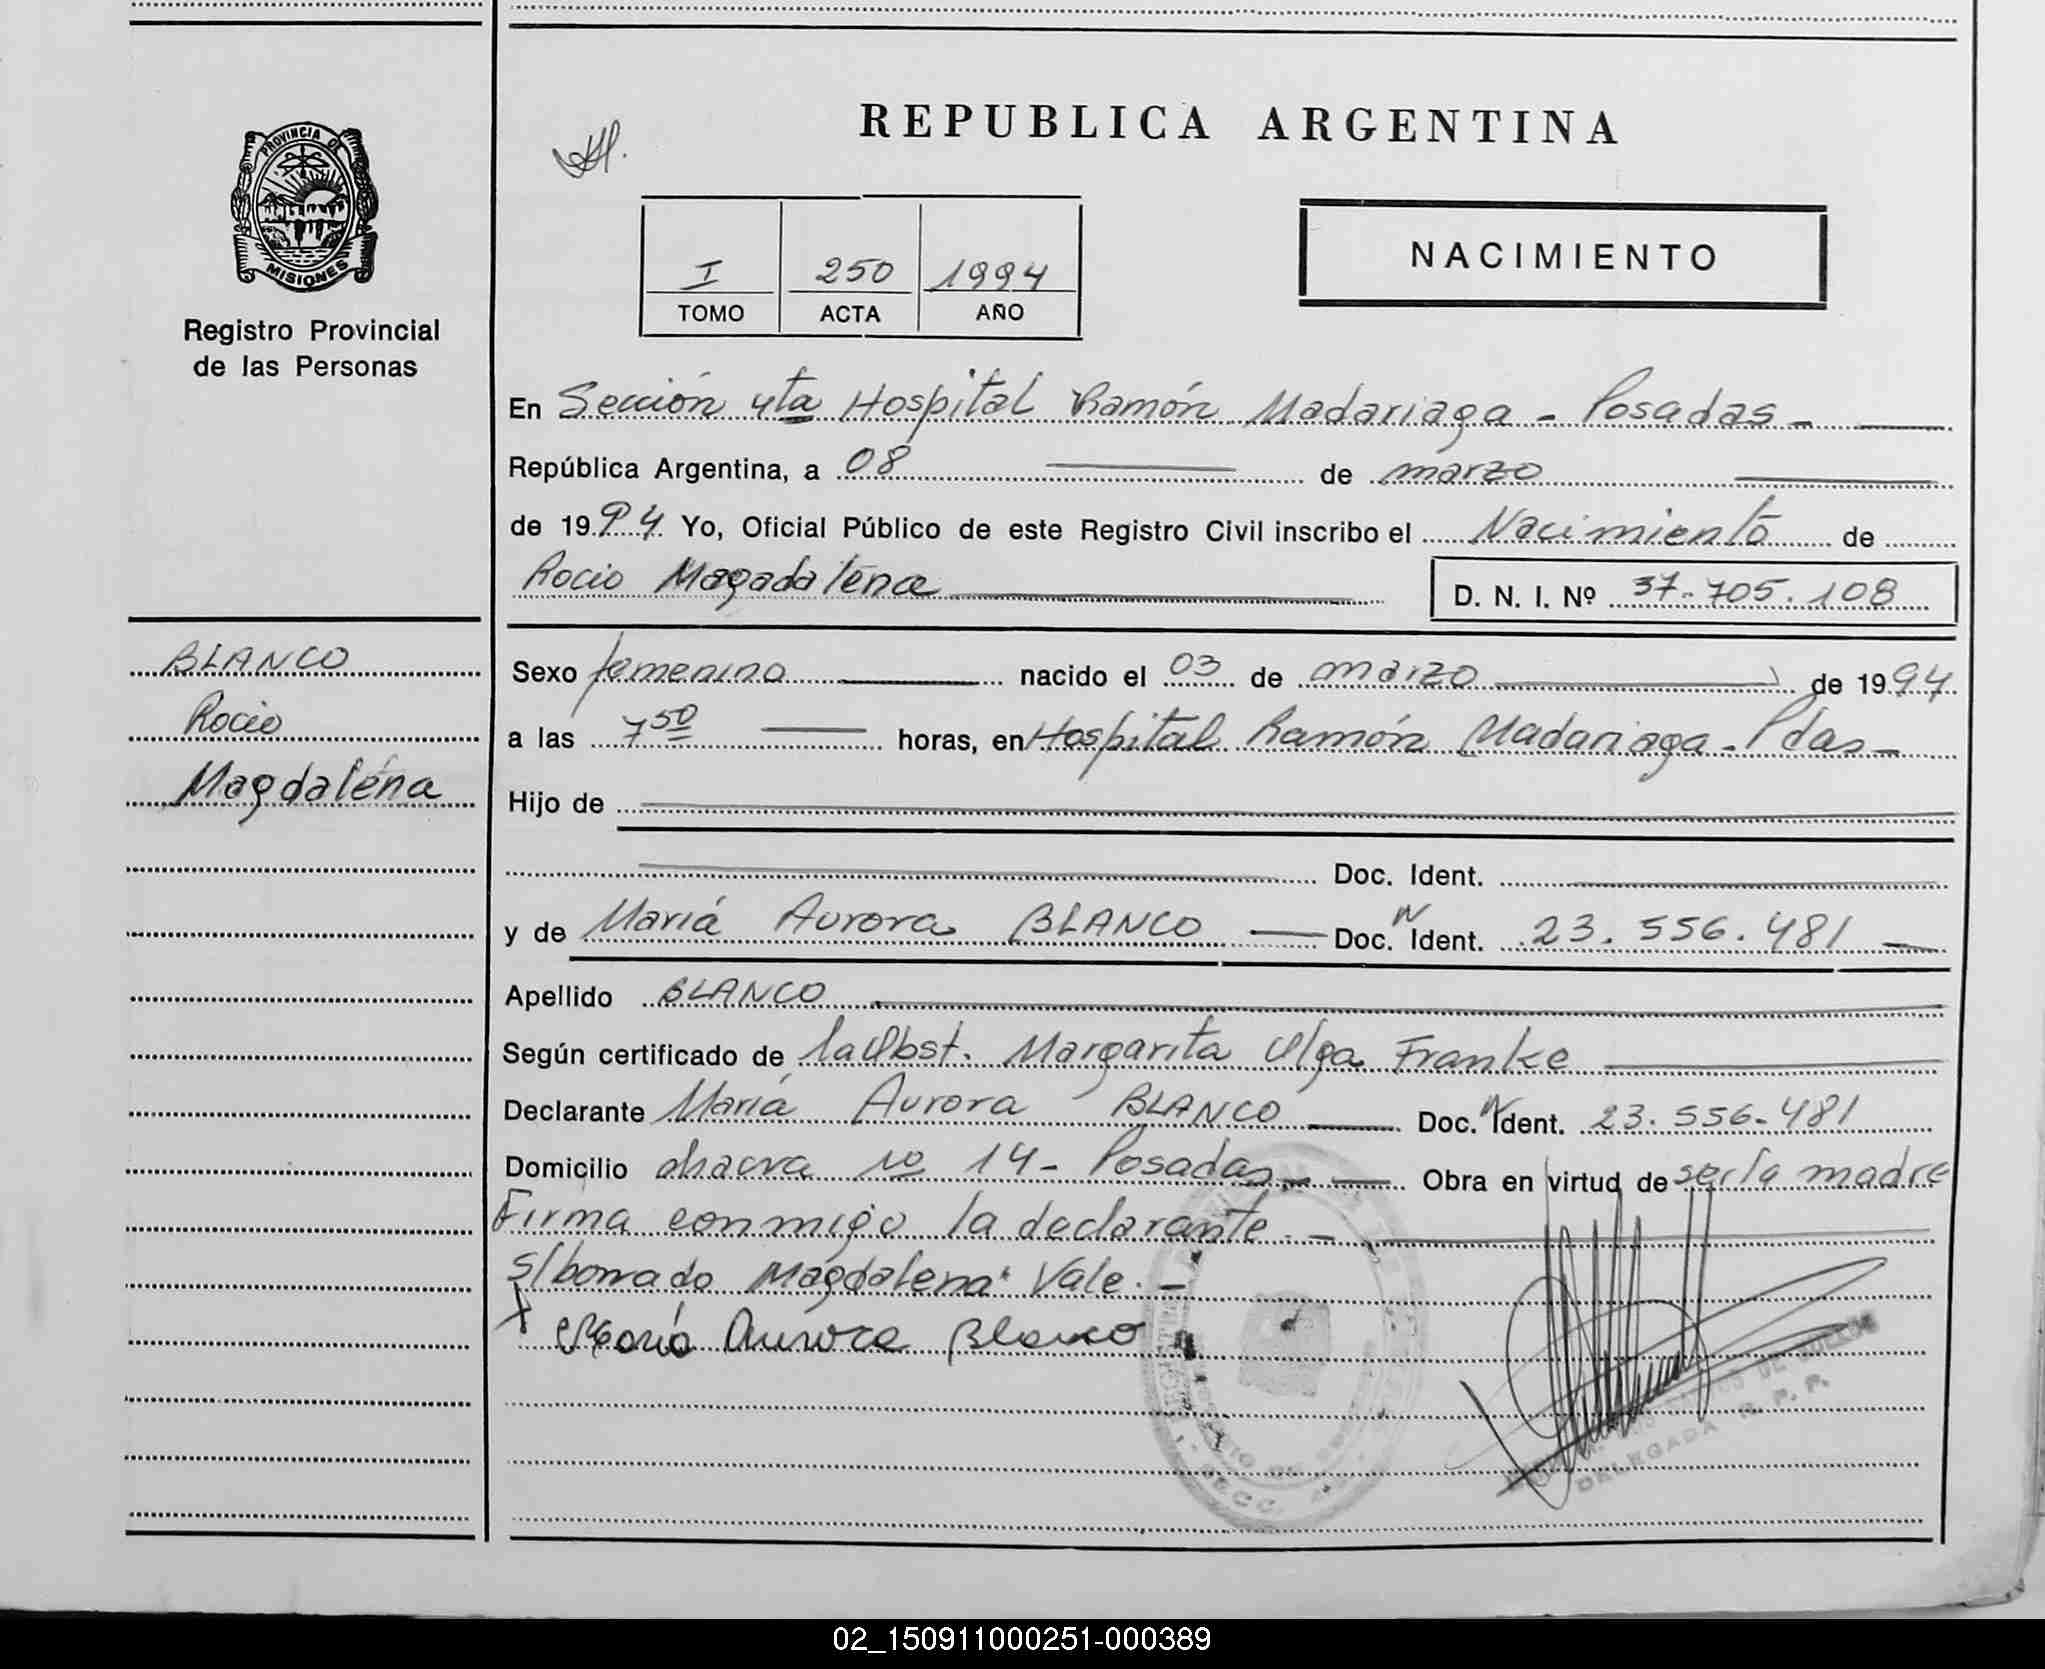 REPUBLICA ARGENTINA
PROVINCIA DE
MISIONES
Registro Provincial
de las Personas
I 250 1994
TOMO ACTA AÑO
NACIMIENTO
En Sección 4ta Hospital Ramón Madariaga - Posadas -
República Argentina, a 08 de marzo
de 1994 Yo, Oficial Público de este Registro Civil inscribo el Nacimiento de
Rocio Magadalena D. N. I. Nº 37.705.108
BLANCO
Rocio
Magdalena
Sexo femenino nacido el 03 de marzo de 1994
a las 7 50 horas, en Hospital Ramón Madariaga - Pdas -
Hijo de
Doc. Ident.
y de María Aurora BLANCO Doc. Ident. 23.556.481
Apellido BLANCO
Según certificado de la Obst. Margarita Olga Franke
Declarante María Aurora BLANCO Doc. Ident. 23.556.481
Domicilio chacra no 14 - Posadas - Obra en virtud de ser la madre
Firma conmigo la declarante. -
s/borrado Magdalena" Vale. -
x María Aurora Blanco
DELEGADA R. P. P.
02_150911000251-000389